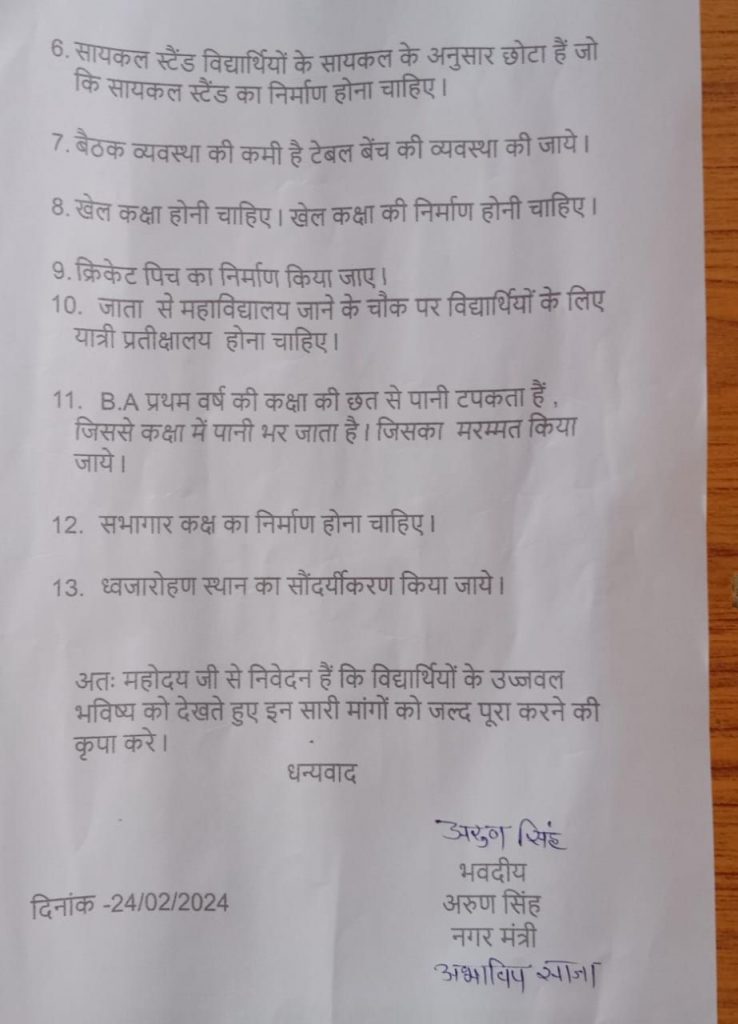 6. सायकल स्टैंड विद्यार्थियों के सायकल के अनुसार छोटा हैं जो
कि सायकल स्टैंड का निर्माण होना चाहिए।
7. बैठक व्यवस्था की कमी है टेबल बेंच की व्यवस्था की जाये।
8. खेल कक्षा होनी चाहिए। खेल कक्षा की निर्माण होनी चाहिए।
9. क्रिकेट पिच का निर्माण किया जाए।
10. जाता से महाविद्यालय जाने के चौक पर विद्यार्थियों के लिए
यात्री प्रतीक्षालय होना चाहिए।
11. B.A प्रथम वर्ष की कक्षा की छत से पानी टपकता हैं ,
जिससे कक्षा में पानी भर जाता है। जिसका मरम्मत किया
जाये।
12. सभागार कक्ष का निर्माण होना चाहिए।
13. ध्वजारोहण स्थान का सौंदर्यीकरण किया जाये।
अतः महोदय जी से निवेदन हैं कि विद्यार्थियों के उज्जवल
भविष्य को देखते हुए इन सारी मांगों को जल्द पूरा करने की
कृपा करे।
धन्यवाद
अरुण सिंह
भवदीय
दिनांक -24/02/2024 अरुण सिंह
नगर मंत्री
अभाविप साजा